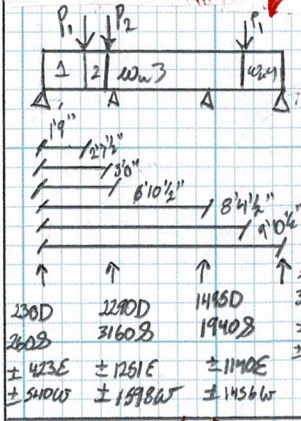 P1 P2 P1
1 2 ωu3 ωu4
1'9"
2'7½"
3'0"
6'10½"
8'4½"
9'0½"
230D 2290D 1495D
260S 3160S 1940S
± 423E ± 1251E ± 1140E
± 540W ± 1598W ± 1456W